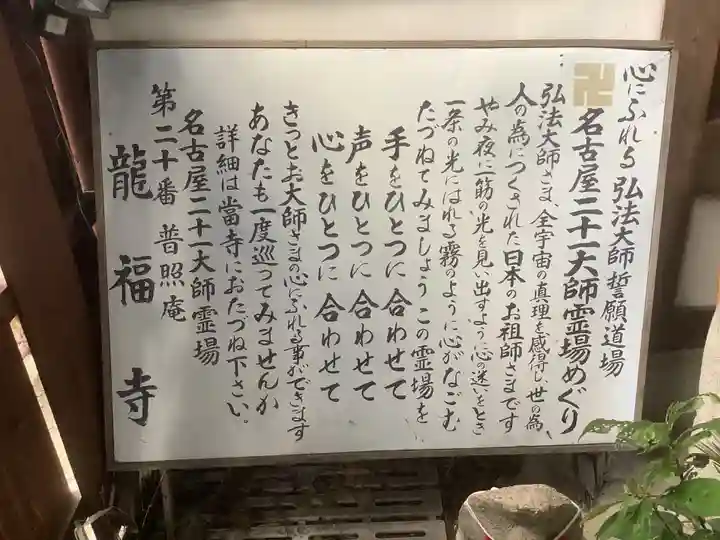 心にふれる 弘法大師誓願道場
卍 名古屋二十一大師霊場めぐり
弘法大師さま、全宇宙の真理を感得し、世の為、
人の為につくされた日本のお祖師さまです
やみ夜に一筋の光を見い出すように心の迷いをとき
一条の光にはれる霧のように心がなごむ
たづねてみましょうこの霊場を
手をひとつに合わせて
声をひとつに合わせて
心をひとつに合わせて
きっとお大師さまの心にふれる事ができます
あなたも一度巡ってみませんか
詳細は當寺におたづね下さい。
名古屋二十一大師霊場
第二十番 普照庵
龍福寺